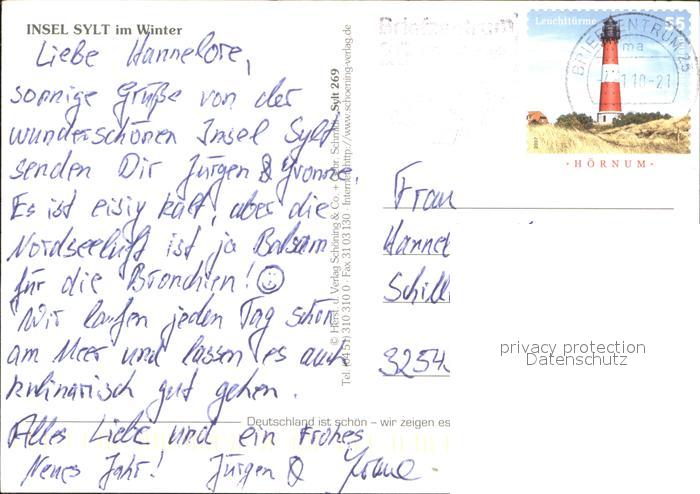 INSEL SYLT im Winter
Liebe Hannelore,
sonnige Grüße von der
wunderschönen Insel Sylt
senden Dir Jürgen & Yvonne.
Es ist eisig kalt, aber die
Nordseeluft ist ja Balsam
für die Bronchien! ☺
Wir laufen jeden Tag schön
am Meer und lassen es auch
kulinarisch gut gehen.
Alles Liebe und ein Frohes
Neues Jahr! Jürgen &
Deutschland ist schön – wir zeigen es
© Horst. u. Verlag Schöning & Co. + Gebr. Schmidt Sylt 269
Tel. (04 51) 310 310 0 · Fax 31 03 130 Internet http://www.schoening-verlag.de
Briefzentrum
Leuchttürme 55
BRIEFZENTRUM 25
HÖRNUM
2007
Frau
Hannel
Schill
3254
privacy protection
Datenschutz